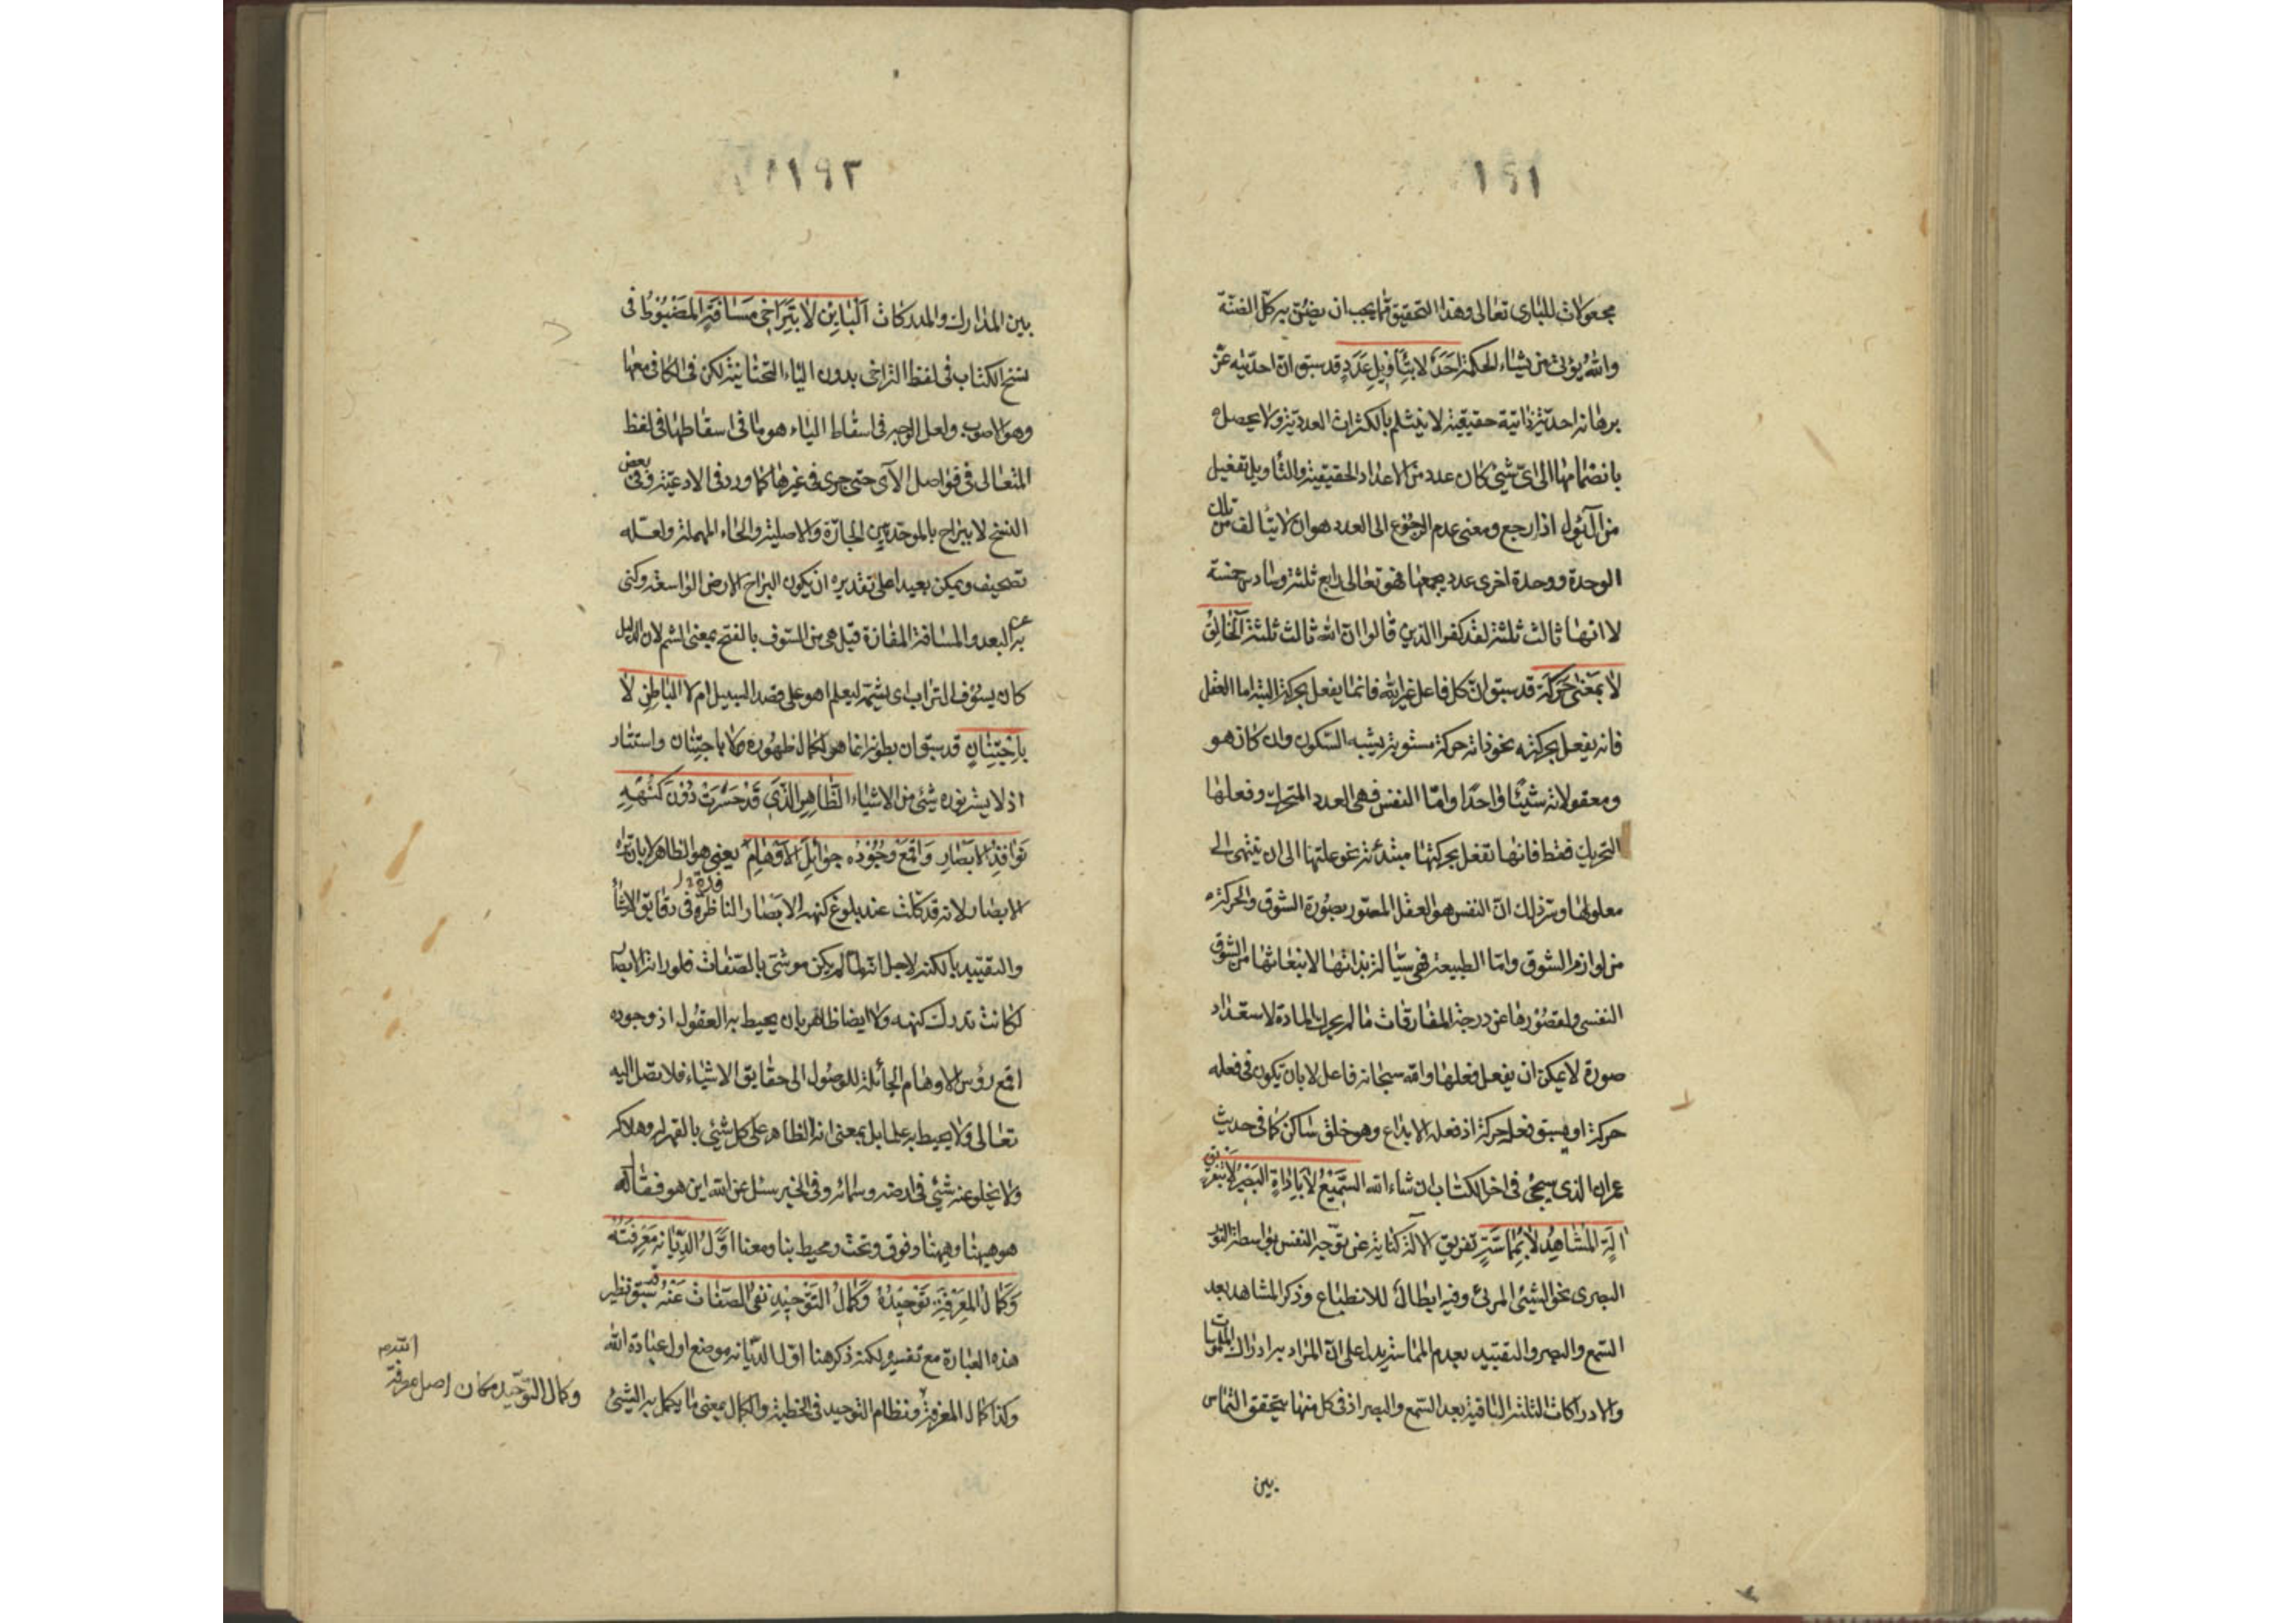 ١٩١
مجعولات للباری تعالی وهذا التحقیق مما یجب ان یضنّ به کل الضنّة
والله یؤتی من یشاء الحکمة احدٌ لا بتأویل عددٍ قد سبق انّ احدیّته عزّ
برهانه احدیّة ذاتیّة حقیقیة لا ینثلم بالکثرات العددیّة ولا یحصل
بانضمامها الی ایّ شیئ کان عدد من الاعداد الحقیقیة والتأویل تفعیل
من الاَوْل اذا رجع ومعنی عدم الرجوع الی العدد هو ان لا یتألف من تلک
الوحدة ووحدة اخری عدد یجمعها فهو تعالی رابع ثلثة وسادس خمسة
لا انها ثالث ثلثة لقد کفر الذین قالوا ان الله ثالث ثلثة الخالق
لا بمعنی حرکة قد سبق انّ کل فاعل غیر الله فانما یفعل بحرکة البتة اما العقل
فانه یفعل بحرکته نحو ذاته حرکة مستویة یشبه السّکون وان کان هو
ومعقولاته شیئًا واحدًا وامّا النفس فهی العدد المتحرک وفعلها
التحریک فقط فانها تفعل بحرکتها مبتدئة نحو علتها الی ان ینتهی الی
معلولها وسرّ ذلک انّ النفس هو العقل المصوّر بصورة الشوق والحرکة
من لوازم الشوق وامّا الطبیعة فهی سیّالة بذاتها لانبعاثها من الشوق
النفسی ولقصورها عن درجة المفارقات ما لم یحرک المادة لاستعداد
صورة لا یمکن ان یفعل فعلها والله سبحانه فاعل لا بان یکون فی فعله
حرکة او یسبق فعله حرکة اذ فعله الابداع وهو خلق ساکن کما فی حدیث
عمران الذی سیجئ فی اخر الکتاب ان شاء الله السّمیع لا باداة البصیر لا بتفریق
آلة المشاهد لا بمماسّة تفریق الآلة کنایة عن توجّه النفس بواسطة القوة
البصری نحو الشیئ المرئی وفیه ابطال للانطباع وذکر المشاهد بعد
السّمع والبصر والتقیید بعدم المماسة یدل علی انّ المراد به ادراک الملموسات
والادراکات الثلثة الباقیة بعد السّمع والبصر اذ فی کل منها یتحقق التماس
بین
١٩٢
بین المدارک والمدرکات الباین لا بتراخی مسافة المضبوط فی
نسخ الکتاب فی لفظ التراخی بدون الیاء التحتانیة لکن فی الکافی معها
وهو الاصوب ولعل الوجه فی اسقاط الیاء هو ما فی اسقاطها فی لفظ
المتعالی فی فواصل الآی حتی جری فی غیرها کما ورد فی الادعیّة وفی بعض
النسخ لا ببراح بالموحدتین الجارّة والاصلیة والحاء المهملة ولعله
تصحیف ویمکن بعیدا علی تقدیره ان یکون البراح الارض الواسعة وکنی
به عن البعد والمسافة المفازة قیل هی من السّوف بالفتح بمعنی الشم لان الدلیل
کان یسوف التراب ای یشمّه لیعلم اهو علی قصد السبیل ام لا الباطن لا
باجتنان قد سبق ان بطونه انما هو لکمال ظهوره ولا باجتنان واستتار
اذ لا یستر نوره شیئ من الاشیاء الظّاهر الّذی قد حسرت دون کنهه
نوافذ الابصار واقمع وجوده جوائل الاوهام یعنی هو الظاهر لا بان تراه
الابصار لانه قد کلّت عند بلوغ کنهه الابصار الناظرة فی دقایق الاشیاء
والتقیید بالکنه لاجل انها لم یکن موشّی بالصّفات فلو رأته الابصار
لکانت تدرک کنهه ولا ایضا ظاهر بان یحیط به العقول اذ وجوده
اقمع رؤس الاوهام الجائلة للوصول الی حقایق الاشیاء فلا تصل الیه
تعالی ولا یحیط به علما بل بمعنی انه الظاهر علی کل شیئ بالقهر له
ولا یخلو عنه شیئ فی ارضه وسمائه وفی الخبر سئل عن الله این هو فقال
هو هیهنا وهیهنا وفوق وتحت ومحیط بنا ومعنا اوّل الدّیانة معرفته
وکمال المعرفة توحیده وکمال التوحید نفی الصّفات عنه قد سبق نظیر
هذه العبارة مع تفسیره لکنه ذکر هنا اوّل الدّیانة موضع اول عبادة الله
وکذا کمال المعرفة ونظام التوحید فی الخطبة والکمال بمعنی ما یکمل به الشیئ
وکمال التوحید مکان اصل معرفة